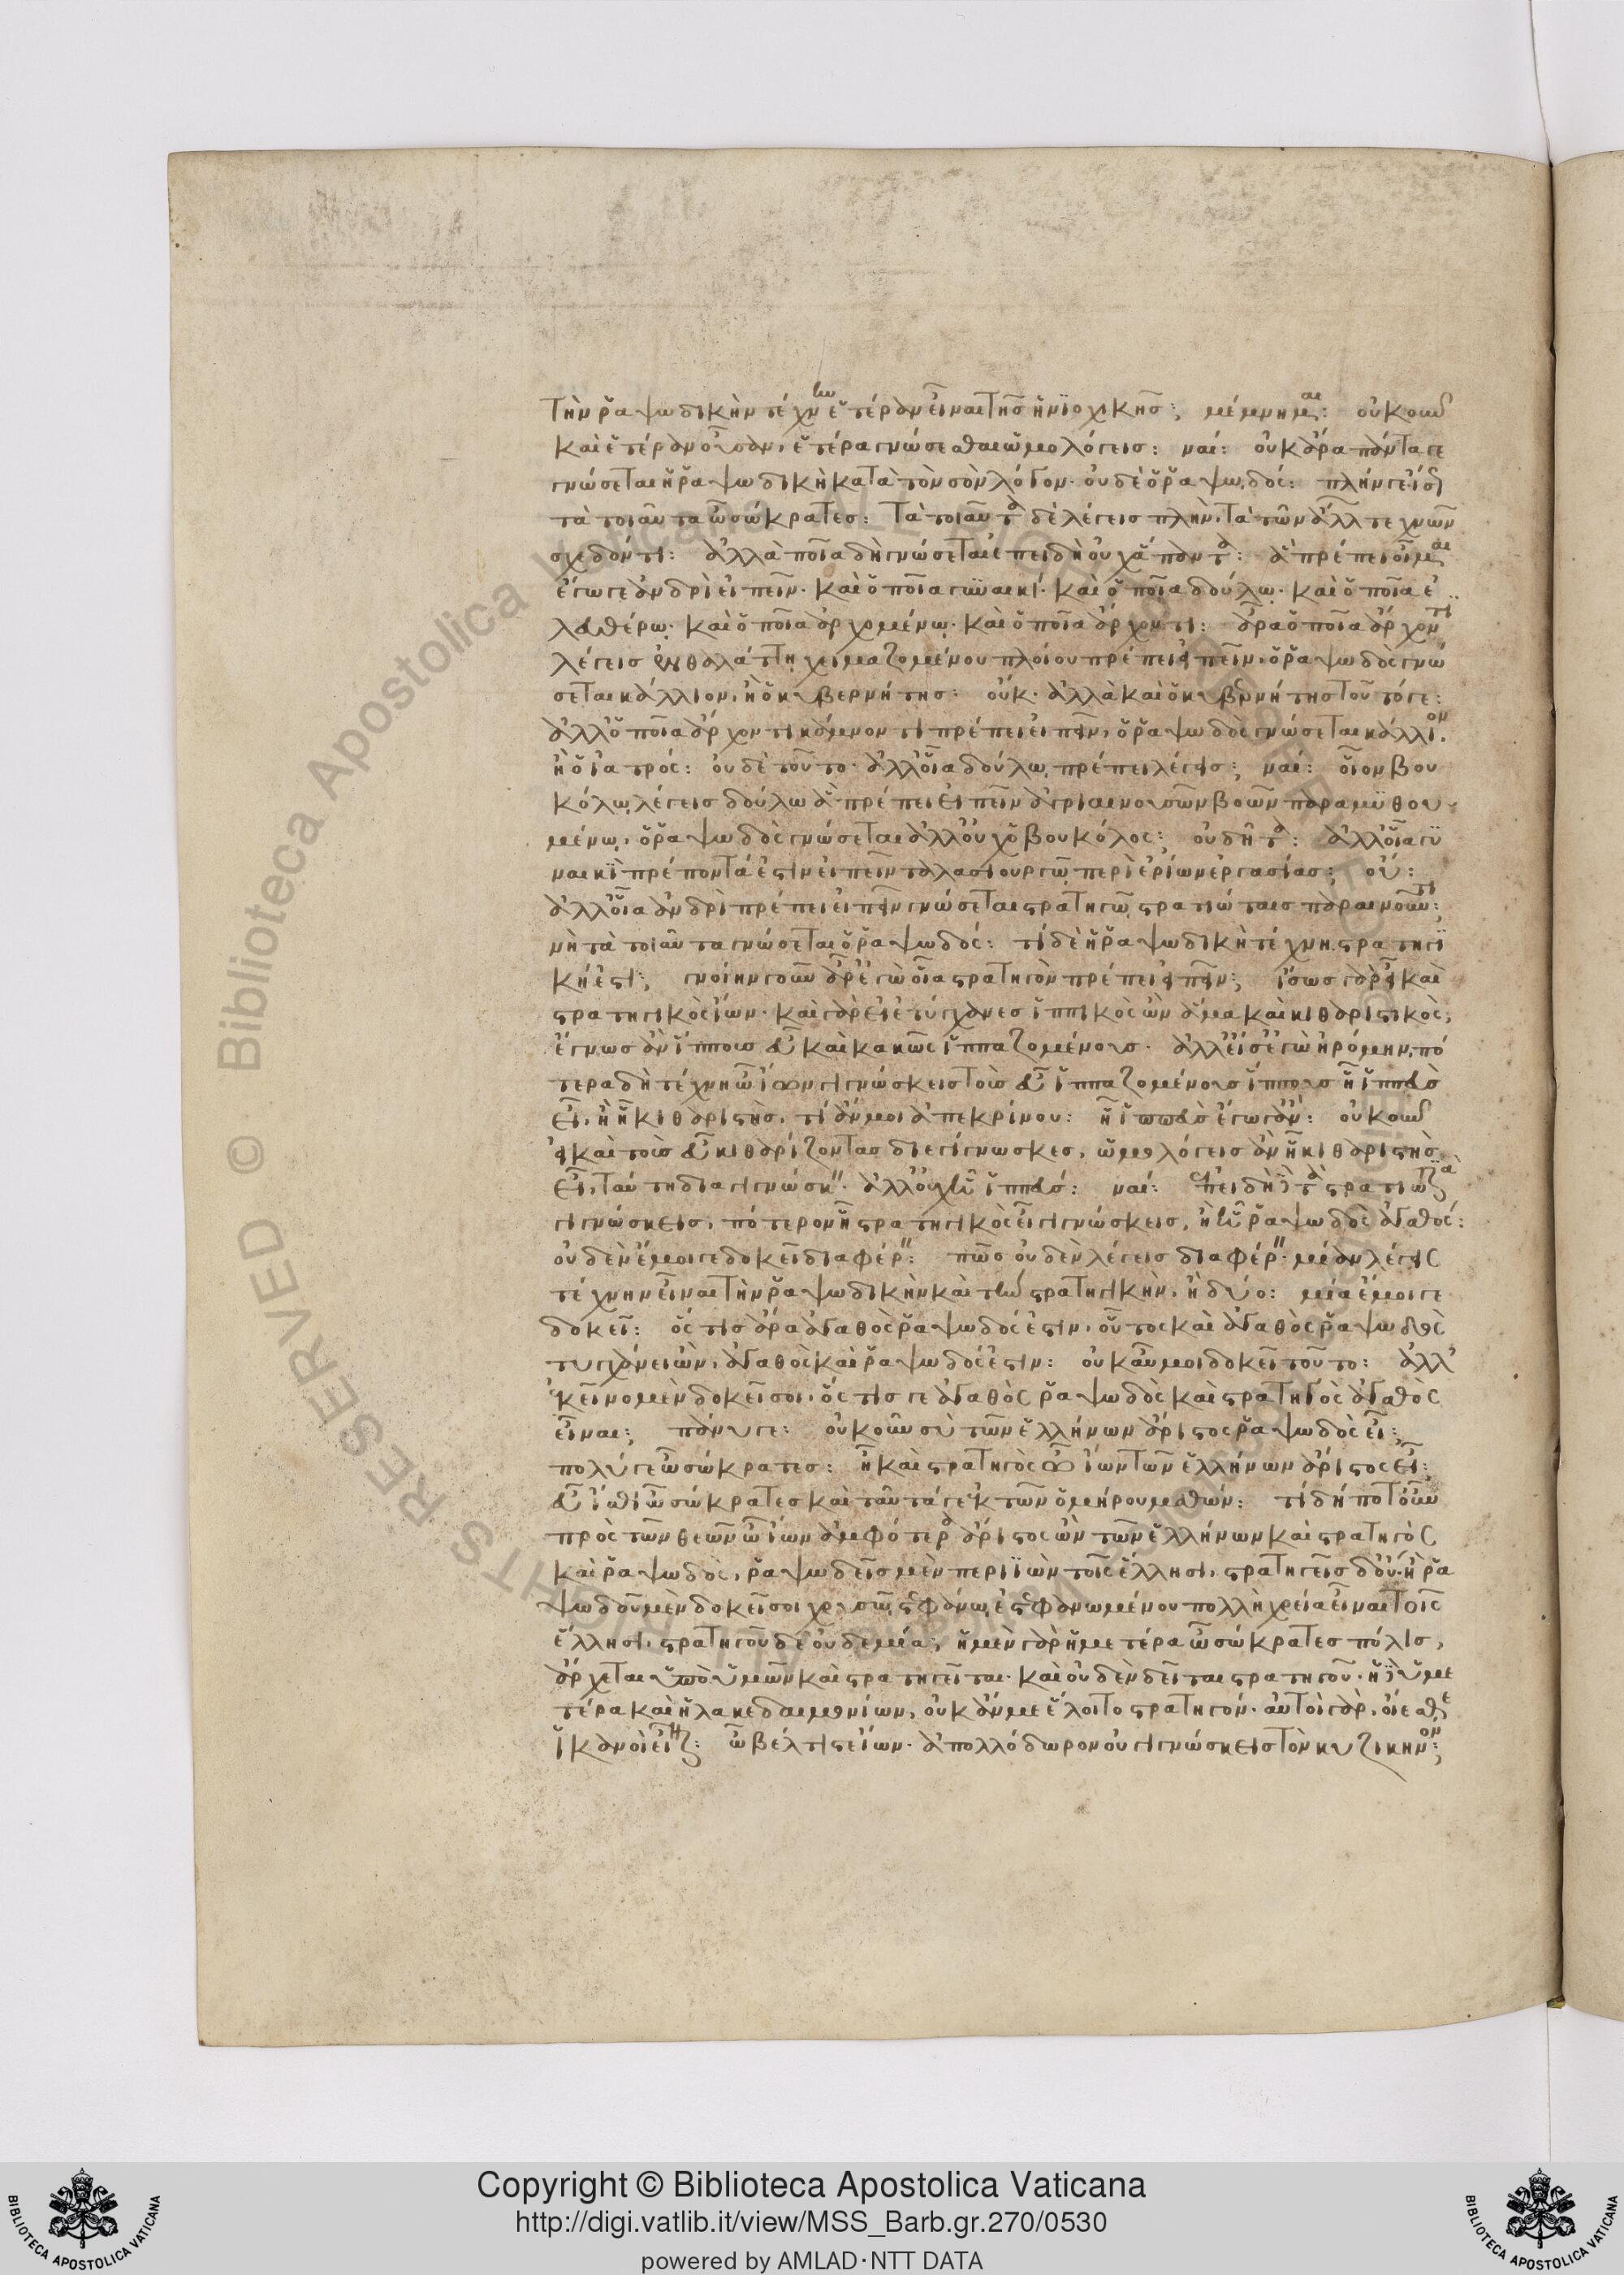 τὴν ῥαψωδικὴν τέχνην ἑτέραν εἶναι τῆς ἡνιοχικῆς; μέμνημαι: οὐκοῦν
καὶ ἑτέραν οὖσαν, ἕτερα γνώσεσθαι ὡμολόγεις: ναί: οὐκ ἄρα πάντα γε
γνώσεται ἡ ῥαψωδικὴ κατὰ τὸν σὸν λόγον. οὐδὲ ὁ ῥαψωδός: πλήν γε ἴσως
τὰ τοιαῦτα ὦ σώκρατες: τὰ τοιαῦτα δὲ λέγεις πλὴν, τὰ τῶν ἄλλων τεχνῶν
σχεδόν τι: ἀλλὰ ποῖα δὴ γνώσεται ἐπειδὴ οὐχ ἅπαντα: ἃ πρέπει οἶμαι
ἔγωγε ἀνδρὶ εἰπεῖν. καὶ ὁποῖα γυναικί. καὶ ὁποῖα δούλω. καὶ ὁποῖα ἐ
λευθέρω. καὶ ὁποῖα ἀρχομένω. καὶ ὁποῖα ἄρχοντι: ἆρα ὁποῖα ἄρχοντι
λέγεις ἐν θαλάττη χειμαζομένου πλοίου πρέπει εἰπεῖν, ὁ ῥαψωδὸς γνώ
σεται κάλλιον, ἢ ὁ κυβερνήτης: οὐκ. ἀλλὰ καὶ ὁ κυβερνήτης τοῦτό γε:
ἀλλ' ὁποῖα ἄρχοντι κάμνοντι πρέπει εἰπεῖν, ὁ ῥαψωδὸς γνώσεται κάλλιον.
ἢ ὁ ἰατρός: οὐδὲ τοῦτο. ἀλλ' οἷα δούλω πρέπει λέγεις; ναί: οἷον βου
κόλω λέγεις δούλω ἃ πρέπει εἰπεῖν ἀγριαινουσῶν βοῶν παραμυθου
μένω, ὁ ῥαψωδὸς γνώσεται ἀλλ' οὐχ ὁ βουκόλος; οὐ δῆτα: ἀλλ' οἷα γυ
ναικὶ πρέποντά ἐστιν εἰπεῖν ταλασιουργῶ περὶ ἐρίων ἐργασίας; οὔ:
ἀλλ' οἷα ἀνδρὶ πρέπει εἰπεῖν γνώσεται στρατηγῶ στρατιώταις παραινοῦντι;
νὴ τὰ τοιαῦτα γνώσεται ὁ ῥαψωδός: τί δὲ ἡ ῥαψωδικὴ τέχνη στρατηγι
κή ἐστι; γνοίην γοῦν ἄρ' ἐγὼ οἷα στρατηγὸν πρέπει εἰπεῖν; ἴσως γὰρ εἶ καὶ
στρατηγικὸς ἴων. καὶ γὰρ εἰ ἐτύγχανες ἱππικὸς ὢν ἅμα καὶ κιθαριστικὸς,
ἔγνως ἂν ἵππους εὖ καὶ κακῶς ἱππαζομένους. ἀλλ' εἴ σ' ἐγὼ ἠρόμην, πο
τέρα δὴ τέχνη ὦ ἴων γιγνώσκεις τοὺς εὖ ἱππαζομένους ἵππους ἧ ἱππεὺς
εἶ, ἢ ἧ κιθαριστὴς, τί ἄν μοι ἀπεκρίνου: ἧ ἱππεὺς ἔγωγ' ἄν: οὐκοῦν
εἰ καὶ τοὺς εὖ κιθαρίζοντας διεγίγνωσκες, ὡμολόγεις ἂν ἧ κιθαριστὴς
εἶ, ταύτη διαγιγνώσκειν. ἀλλ' οὐχ ἧ ἱππεύς: ναί: ἐπειδὴ δὲ τὰ στρατιωτικὰ
γιγνώσκεις, πότερον ἧ στρατηγικὸς εἶ γιγνώσκεις, ἢ ἧ ῥαψωδὸς ἀγαθός:
οὐδὲν ἔμοιγε δοκεῖ διαφέρειν: πῶς οὐδὲν λέγεις διαφέρειν. μίαν λέγεις
τέχνην εἶναι τὴν ῥαψωδικὴν καὶ τὴν στρατηγικὴν, ἢ δύο: μία ἔμοιγε
δοκεῖ: ὅστις ἄρα ἀγαθὸς ῥαψωδός ἐστιν, οὗτος καὶ ἀγαθὸς ῥαψωδὸς
τυγχάνει ὢν, ἀγαθὸς καὶ ῥαψωδός ἐστιν: οὐκ αὖ μοι δοκεῖ τοῦτο: ἀλλ'
ἐκεῖνο μὲν δοκεῖ σοι, ὅστις γε ἀγαθὸς ῥαψωδὸς καὶ στρατηγὸς ἀγαθὸς
εἶναι; πάνυ γε: οὐκοῦν σὺ τῶν ἑλλήνων ἄριστος ῥαψωδὸς εἶ;
πολύ γε ὦ σώκρατες: ἦ καὶ στρατηγὸς ὦ ἴων τῶν ἑλλήνων ἄριστος εἶ;
εὖ ἴσθι ὦ σώκρατες καὶ ταῦτά γε ἐκ τῶν ὁμήρου μαθών: τί δή ποτ' οὖν
πρὸς τῶν θεῶν ὦ ἴων ἀμφότερα ἄριστος ὢν τῶν ἑλλήνων καὶ στρατηγὸς
καὶ ῥαψωδὸς, ῥαψωδεῖς μὲν περιϊὼν τοῖς ἕλλησι, στρατηγεῖς δ' οὔ. ἢ ῥα
ψωδοῦ μὲν δοκεῖ σοι χρυσῶ στεφάνω ἐστεφανωμένου πολλὴ χρεία εἶναι τοῖς
ἕλλησι, στρατηγοῦ δὲ οὐδεμία; ἡ μὲν γὰρ ἡμετέρα ὦ σώκρατες πόλις,
ἄρχεται ὑπὸ ὑμῶν καὶ στρατηγεῖται. καὶ οὐδὲν δεῖται στρατηγοῦ. ἡ δὲ ὑμε
τέρα καὶ ἡ λακεδαιμονίων, οὐκ ἄν με ἕλοιτο στρατηγόν. αὐτοὶ γὰρ, οἴεσθε
ἱκανοὶ εἶναι: ὦ βέλτιστε ἴων. ἀπολλόδωρον οὐ γιγνώσκεις τὸν κυζικηνόν;
Copyright © Biblioteca Apostolica Vaticana
http://digi.vatlib.it/view/MSS_Barb.gr.270/0530
powered by AMLAD·NTT DATA
BIBLIOTECA APOSTOLICA VATICANA
BIBLIOTECA APOSTOLICA VATICANA